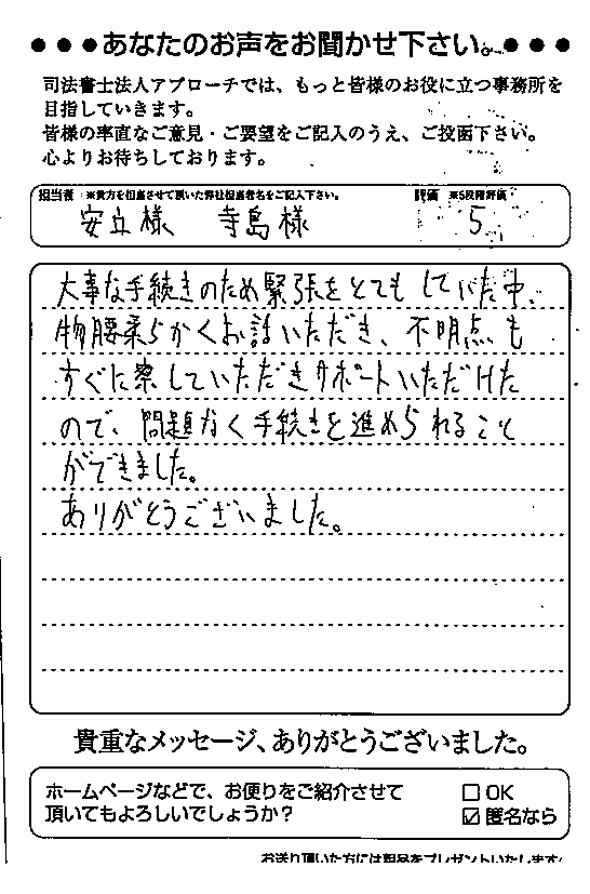 ●●●あなたのお声をお聞かせ下さい。●●●
司法書士法人アプローチでは、もっと皆様のお役に立つ事務所を
目指していきます。
皆様の率直なご意見・ご要望をご記入のうえ、ご投函下さい。
心よりお待ちしております。
担当者 ※貴方を担当させて頂いた弊社担当者名をご記入下さい。 評価 ※5段階評価
安立様 寺島様 5
大事な手続きのため緊張をとてもしていた中、
物腰柔らかくお話いただき、不明点も
すぐに察していただきサポートいただけた
ので、問題なく手続きを進められること
ができました。
ありがとうございました。
貴重なメッセージ、ありがとうございました。
ホームページなどで、お便りをご紹介させて
頂いてもよろしいでしょうか？
□ OK
☑ 匿名なら
お送り頂いた方には粗品をプレゼントいたします